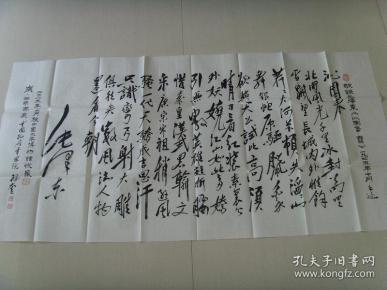 沁园春
北国风光千里冰封万里
雪飘望长城内外惟馀
莽莽大河上下顿失滔滔山
舞银蛇原驱腊象
欲与天公试比高须
晴日看红装素裹分
外妖娆江山如此多娇
引无数英雄竞折腰
惜秦皇汉武略输文
采唐宗宋祖稍逊风
骚一代天骄成吉思汗
只识弯弓射大雕
俱往矣数风流人物
还看今朝
毛泽东
孔夫子旧书网